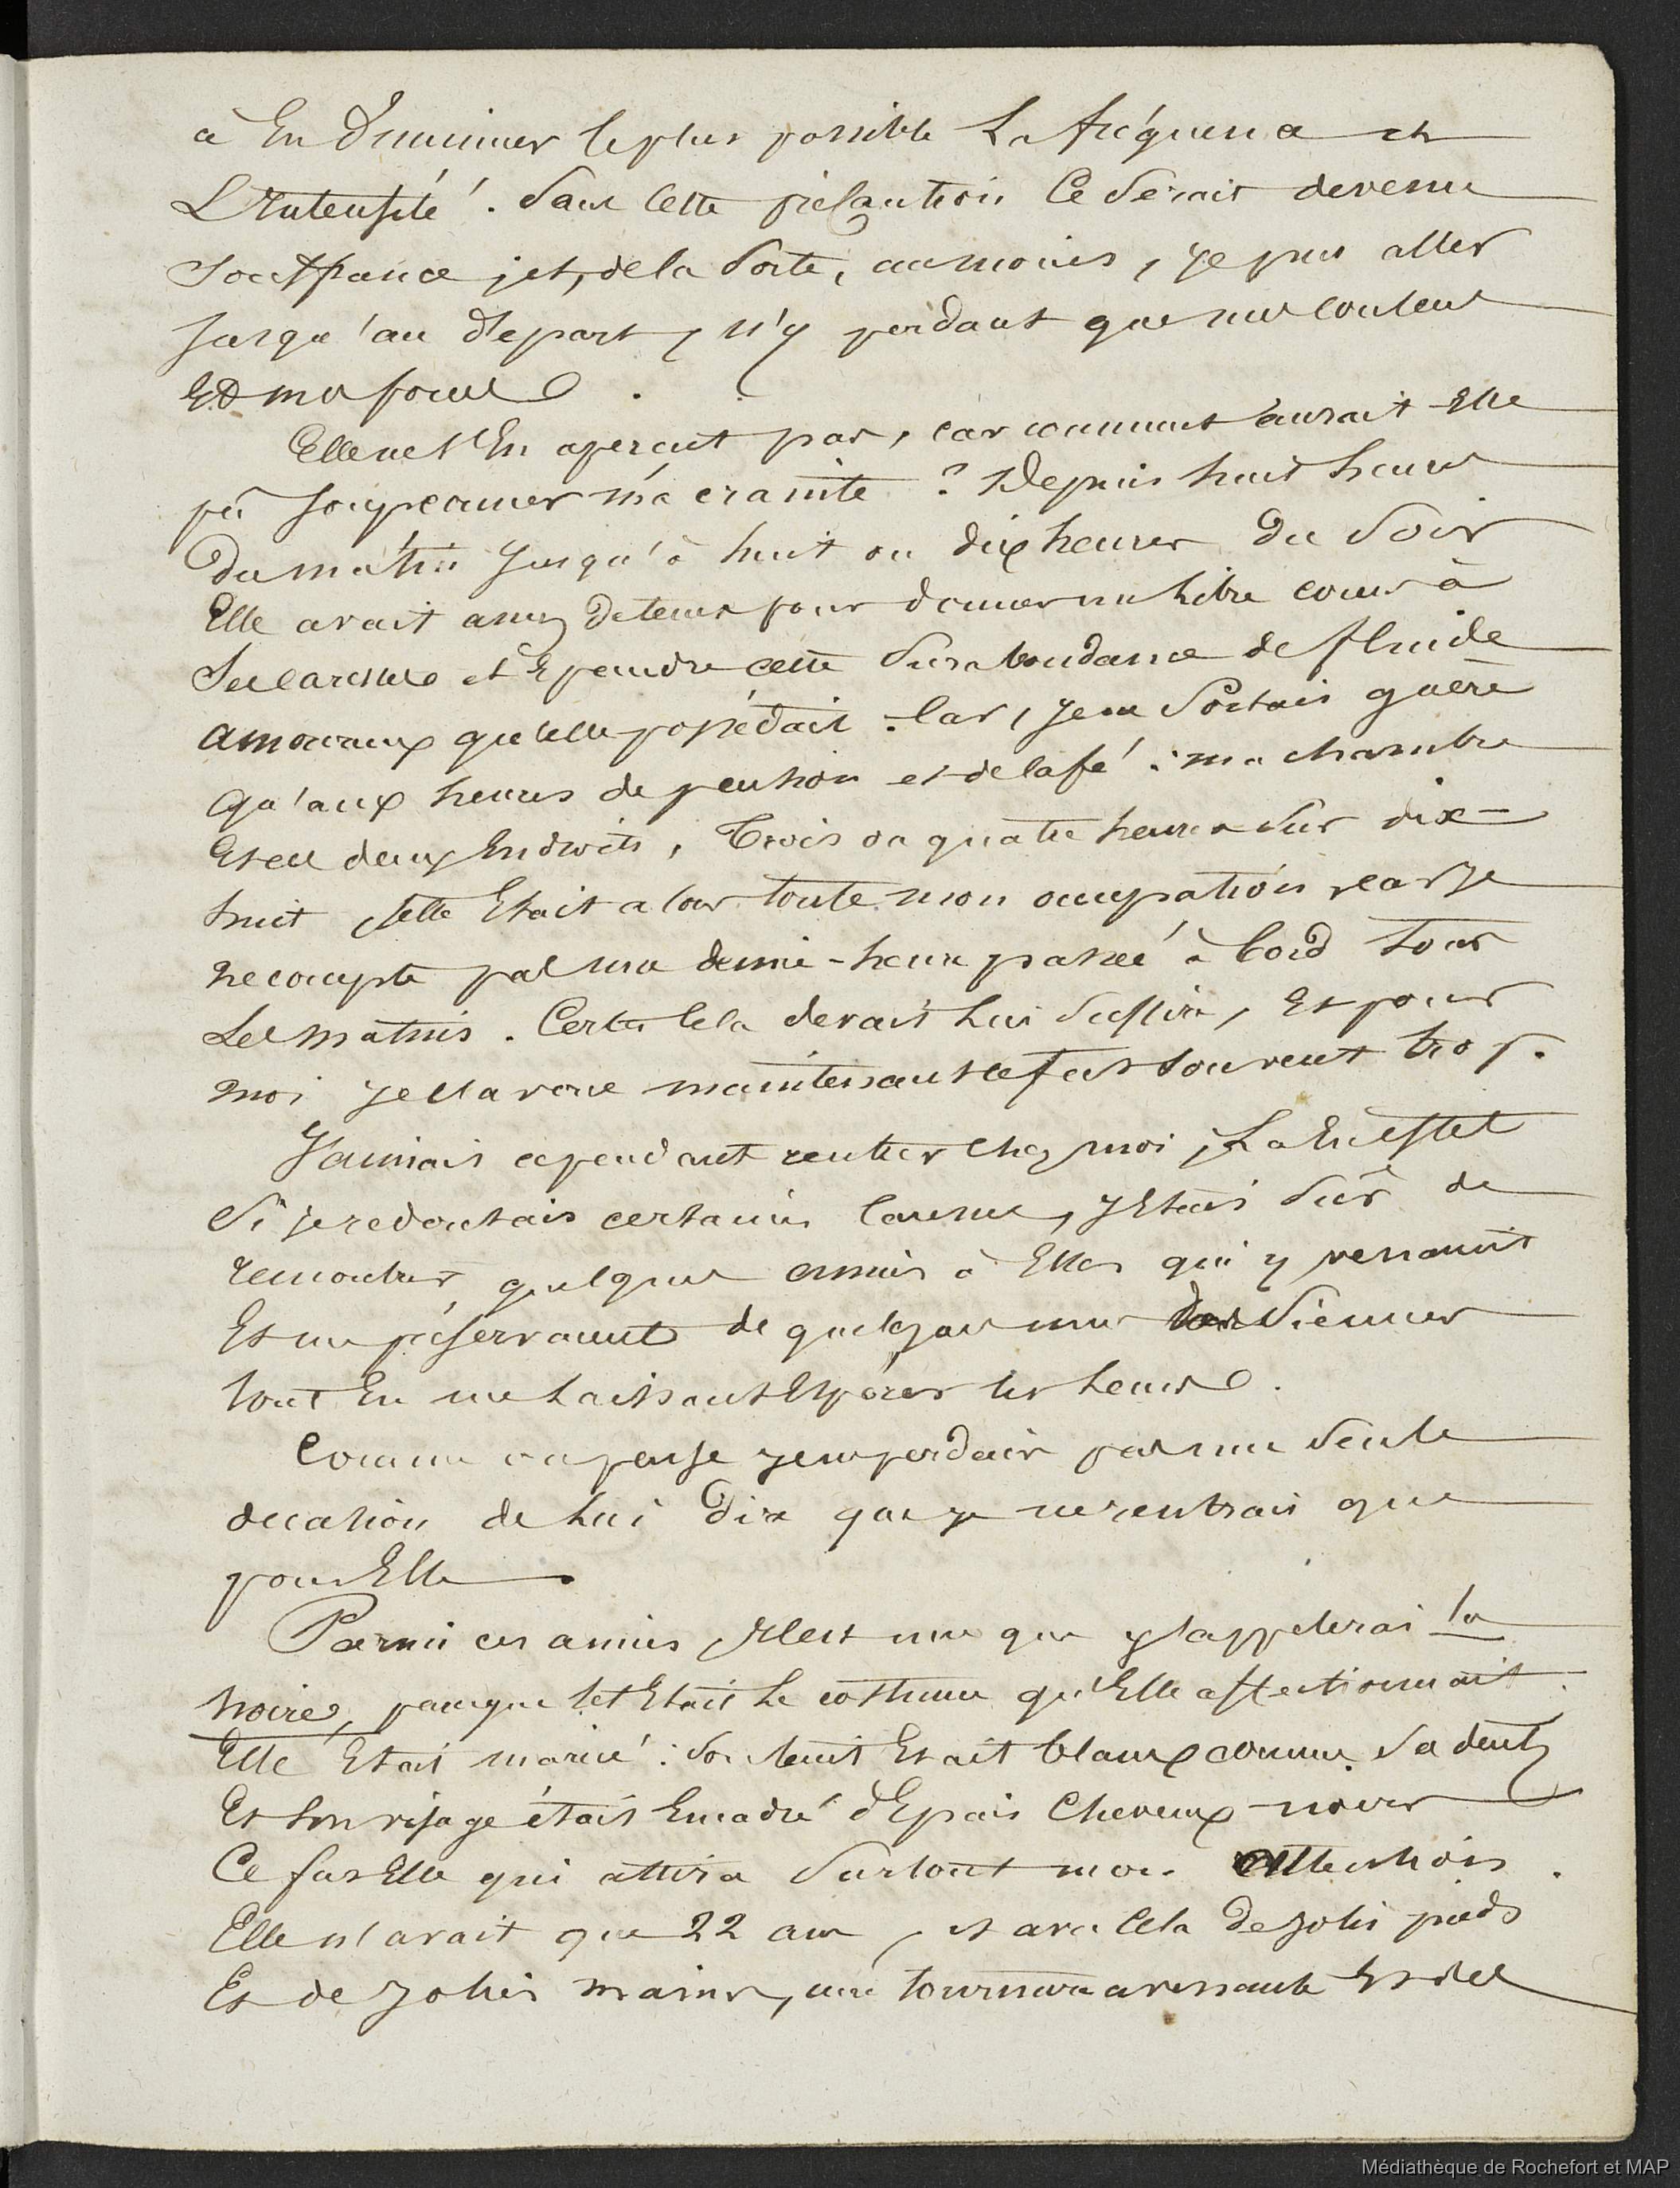 à En Diminuer le plus possible La fréquence et
L'Intensité. Sans Cette précaution Ce Serait devenu
Souffrance ; et, de la Sorte, au moins, je pus aller
Jusqu'au départ, n'y perdant que mes couleurs
Et mes forces.
Elle ne s'En aperçut pas, car comment aurait-Elle
pû soupçonner ma crainte ? Depuis huit heures
Du matin Jusqu'à huit ou dix heures Du Soir
Elle avait assez De tems pour donner un Libre cours à
Ses caresses et Epandre cette Surabondance de fluide
amoureux qu'elle possédait. Car, Je ne Sortais guère
Qu'aux heures de pension et de Café : ma chambre
Et ces deux Endroits, Trois ou quatre heures Sur dix-
huit, telle Etait alors toute mon occupation, car Je
ne compte pas une demie-heure passée à bord tous
Les Matins. Certes Cela devait Lui Suffire, Et pour
moi Je L'avoue maintenant ce fut Souvent trop.
J'aimais cependant rentrer Chez moi, Là En effet
Si je redoutais certaines Caresses, J'Etais Sûr de
rencontrer quelques amies à Elles qui y venaient
Et me préservaient de quelques unes des Siennes
tout En me Laissant Espérer les Leurs.
Comme on pense Je ne perdais pas une Seule
occasion de Lui Dire que je ne rentrais que
pour Elle.
Parmi ces amies, Il est une que j'appelerai la
noire, parceque c'et Etait Le costume qu'Elle affectionnait.
Elle Etait mariée : Son teint Etait blanc comme Ses dents
Et Son visage était Encadré d'Epais Cheveux noirs
Ce fut Elle qui attira Surtout mon attention.
Elle n'avait que 22 ans, et avec Cela De Jolis pieds
Et de Jolies mains, une tournure avenante Et des